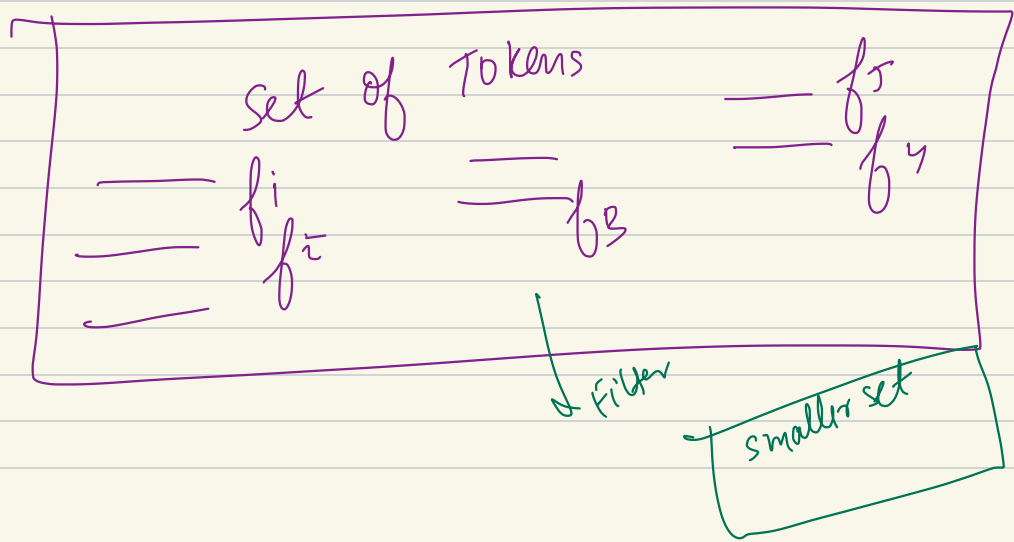 set of Tokens
f1
f2
f3
f5
f4
Filter
smaller set